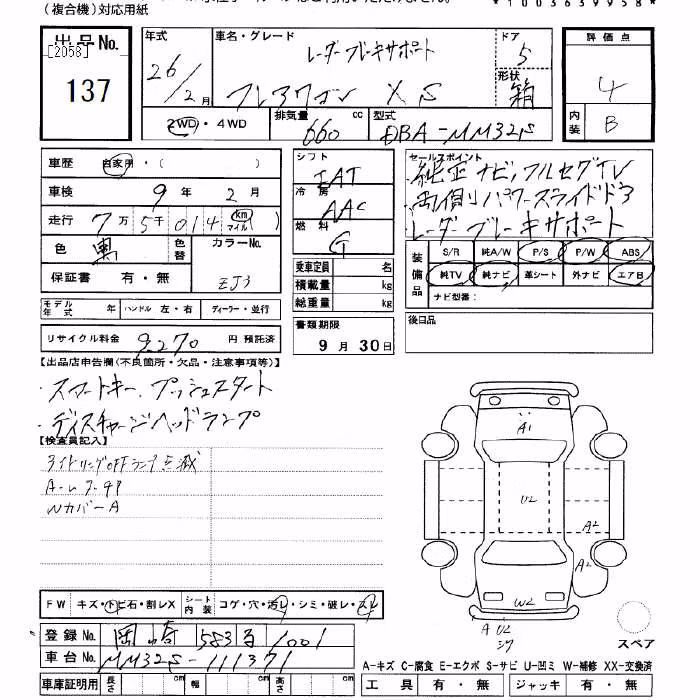 (複合機)対応用紙
*1003639958*
出品No.
[2058]
137
年式
26/2月
車名・グレード
レーダーブレーキサポート
フレアワゴン XS
ドア
5
形状
箱
評価点
4
内装
B
2WD・4WD
排気量
660 cc
型式
DBA-MM32S
車歴
自家用・( )
車検
9年 2月
走行
7万5千014 (km マイル)
色
黒
色替
カラーNo.
ZJ3
保証書 有・無
シフト
IAT
冷房
AAC
燃料
G
乗車定員 名
積載量 kg
総重量 kg
セールスポイント
純正ナビ,フルセグTV
両側パワースライドドア
レーダーブレーキサポート
装備品
S/R 純A/W P/S P/W ABS
純TV 純ナビ 革シート 外ナビ エアB
ナビ型番:
モデル年式 年 ハンドル 左・右 ディーラー・並行
リサイクル料金 9270 円 預託済
書類期限
9月30日
後日品
【出品店申告欄(不良箇所・欠品・注意事項等)】
・スマートキー.プッシュスタート
・ディスチャージヘッドランプ
【検査員記入】
アイドリングOFFランプ点滅
WカバーA
A1
U2
A2
A2
W2
A U2
FW キズ・トビ石・割レX シート内装 コゲ・穴・汚レ・シミ・破レ・スレ
登録No. 岡崎 583 る 1001
車台No. MM32S-111371
車庫証明用 長さ cm 幅 cm 高さ cm
スペア
A-キズ C-腐食 E-エクボ S-サビ U-凹ミ W-補修 XX-交換済
工具 有・無 ジャッキ 有・無